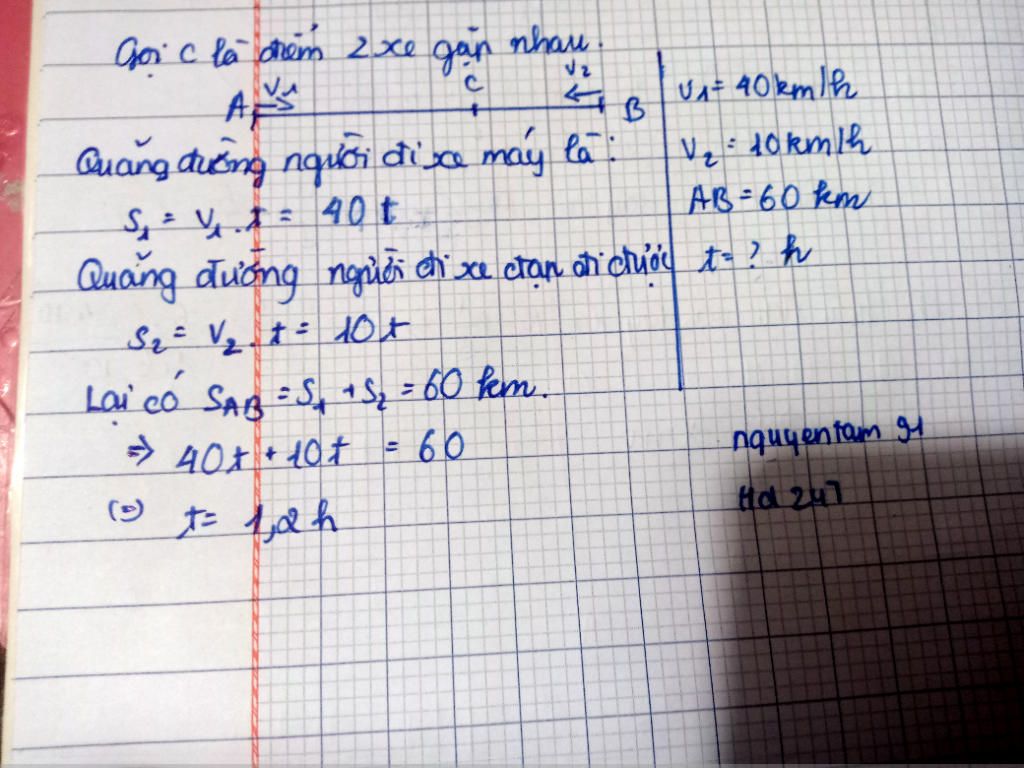 Gọi C là điểm 2 xe gặp nhau.
A V₁ C V₂ B
Quãng đường người đi xe máy là:
S₁ = V₁.t = 40t
Quãng đường người đi xe đạp đi được
S₂ = V₂.t = 10t
Lại có S_AB = S₁ + S₂ = 60 km.
⇒ 40t + 10t = 60
(=) t = 1,2 h
V₁ = 40 km/h
V₂ = 10 km/h
AB = 60 km
t = ? h
nguyentam 91
Hd 247